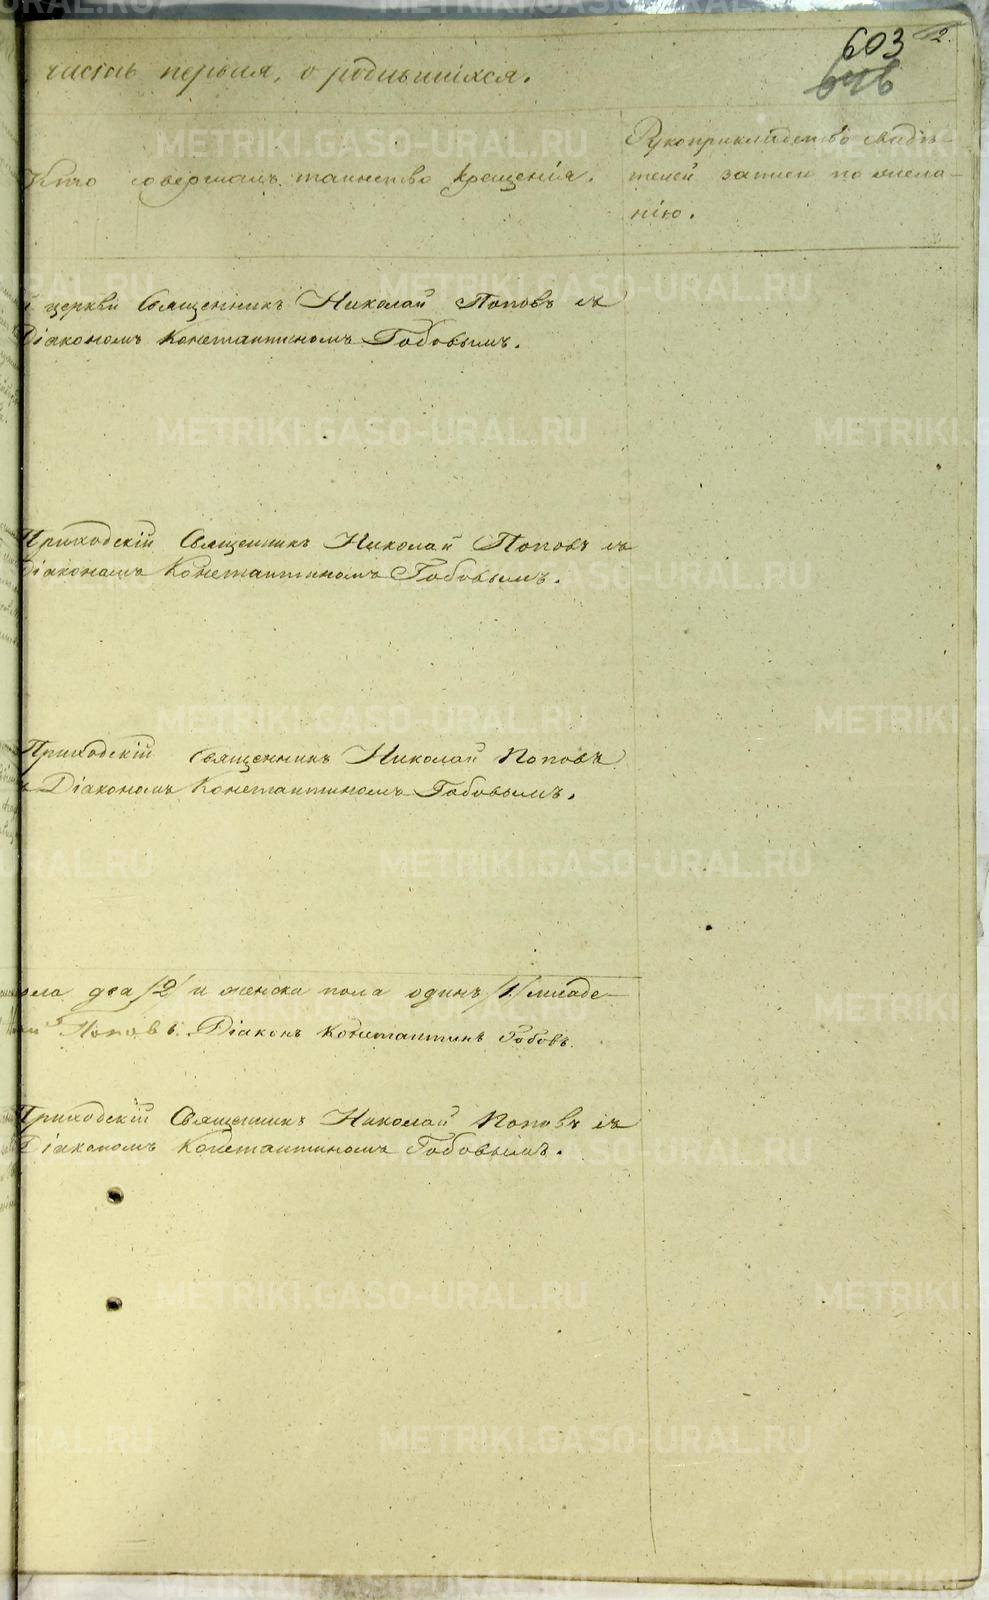 603 12.
646
часть первая, о родившихся.
Кто совершалъ таинство крещенія.
Рукоприкладство свидѣ-
телей записи по жела-
нію.
й церкви Священникъ Николай Поповъ съ
Діакономъ Константиномъ Гобовымъ.
Приходскій Священникъ Николай Поповъ съ
Діакономъ Константиномъ Гобовымъ.
Приходскій Священникъ Николай Поповъ
Діакономъ Константиномъ Гобовымъ.
два /2/ и женска пола одинъ /1/ младе-
Поповъ. Діаконъ Константинъ Гобовъ.
Приходскій Священникъ Николай Поповъ съ
Діакономъ Константиномъ Гобовымъ.
METRIKI.GASO-URAL.RU